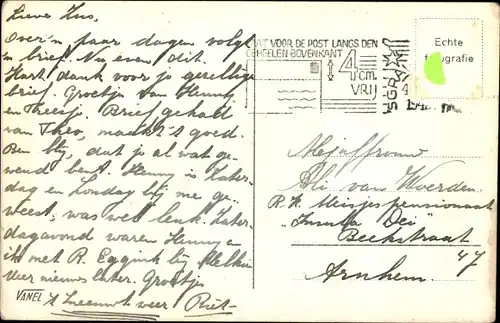 Lieve Zus,
Over'n paar dagen volgt
n brief. Nu even dit.
Hart dank voor je gezellige
brief. Groetjes van Henny
en Theesje. Brief gehad
van Theo, maakt 't goed.
Ben blij, dat je al wat ge-
wend bent. Henny is Zater-
dag en Zondag bij me ge-
weest, was wel leuk. Zater-
dagavond waren Henny en
ik met R. Eggink bij
Meer nieuws later. Groetjes
VANEL 't sneeuwt weer Riet
LAAT VOOR DE POST LANGS DEN
GEHEELEN BOVENKANT
4 cm.
VRIJ
Echte
fotografie
Mejuffrouw
Ali van Woerden
R.K. Meisjespensionaat
"Insula Dei"
Beekstraat
47
Arnhem.